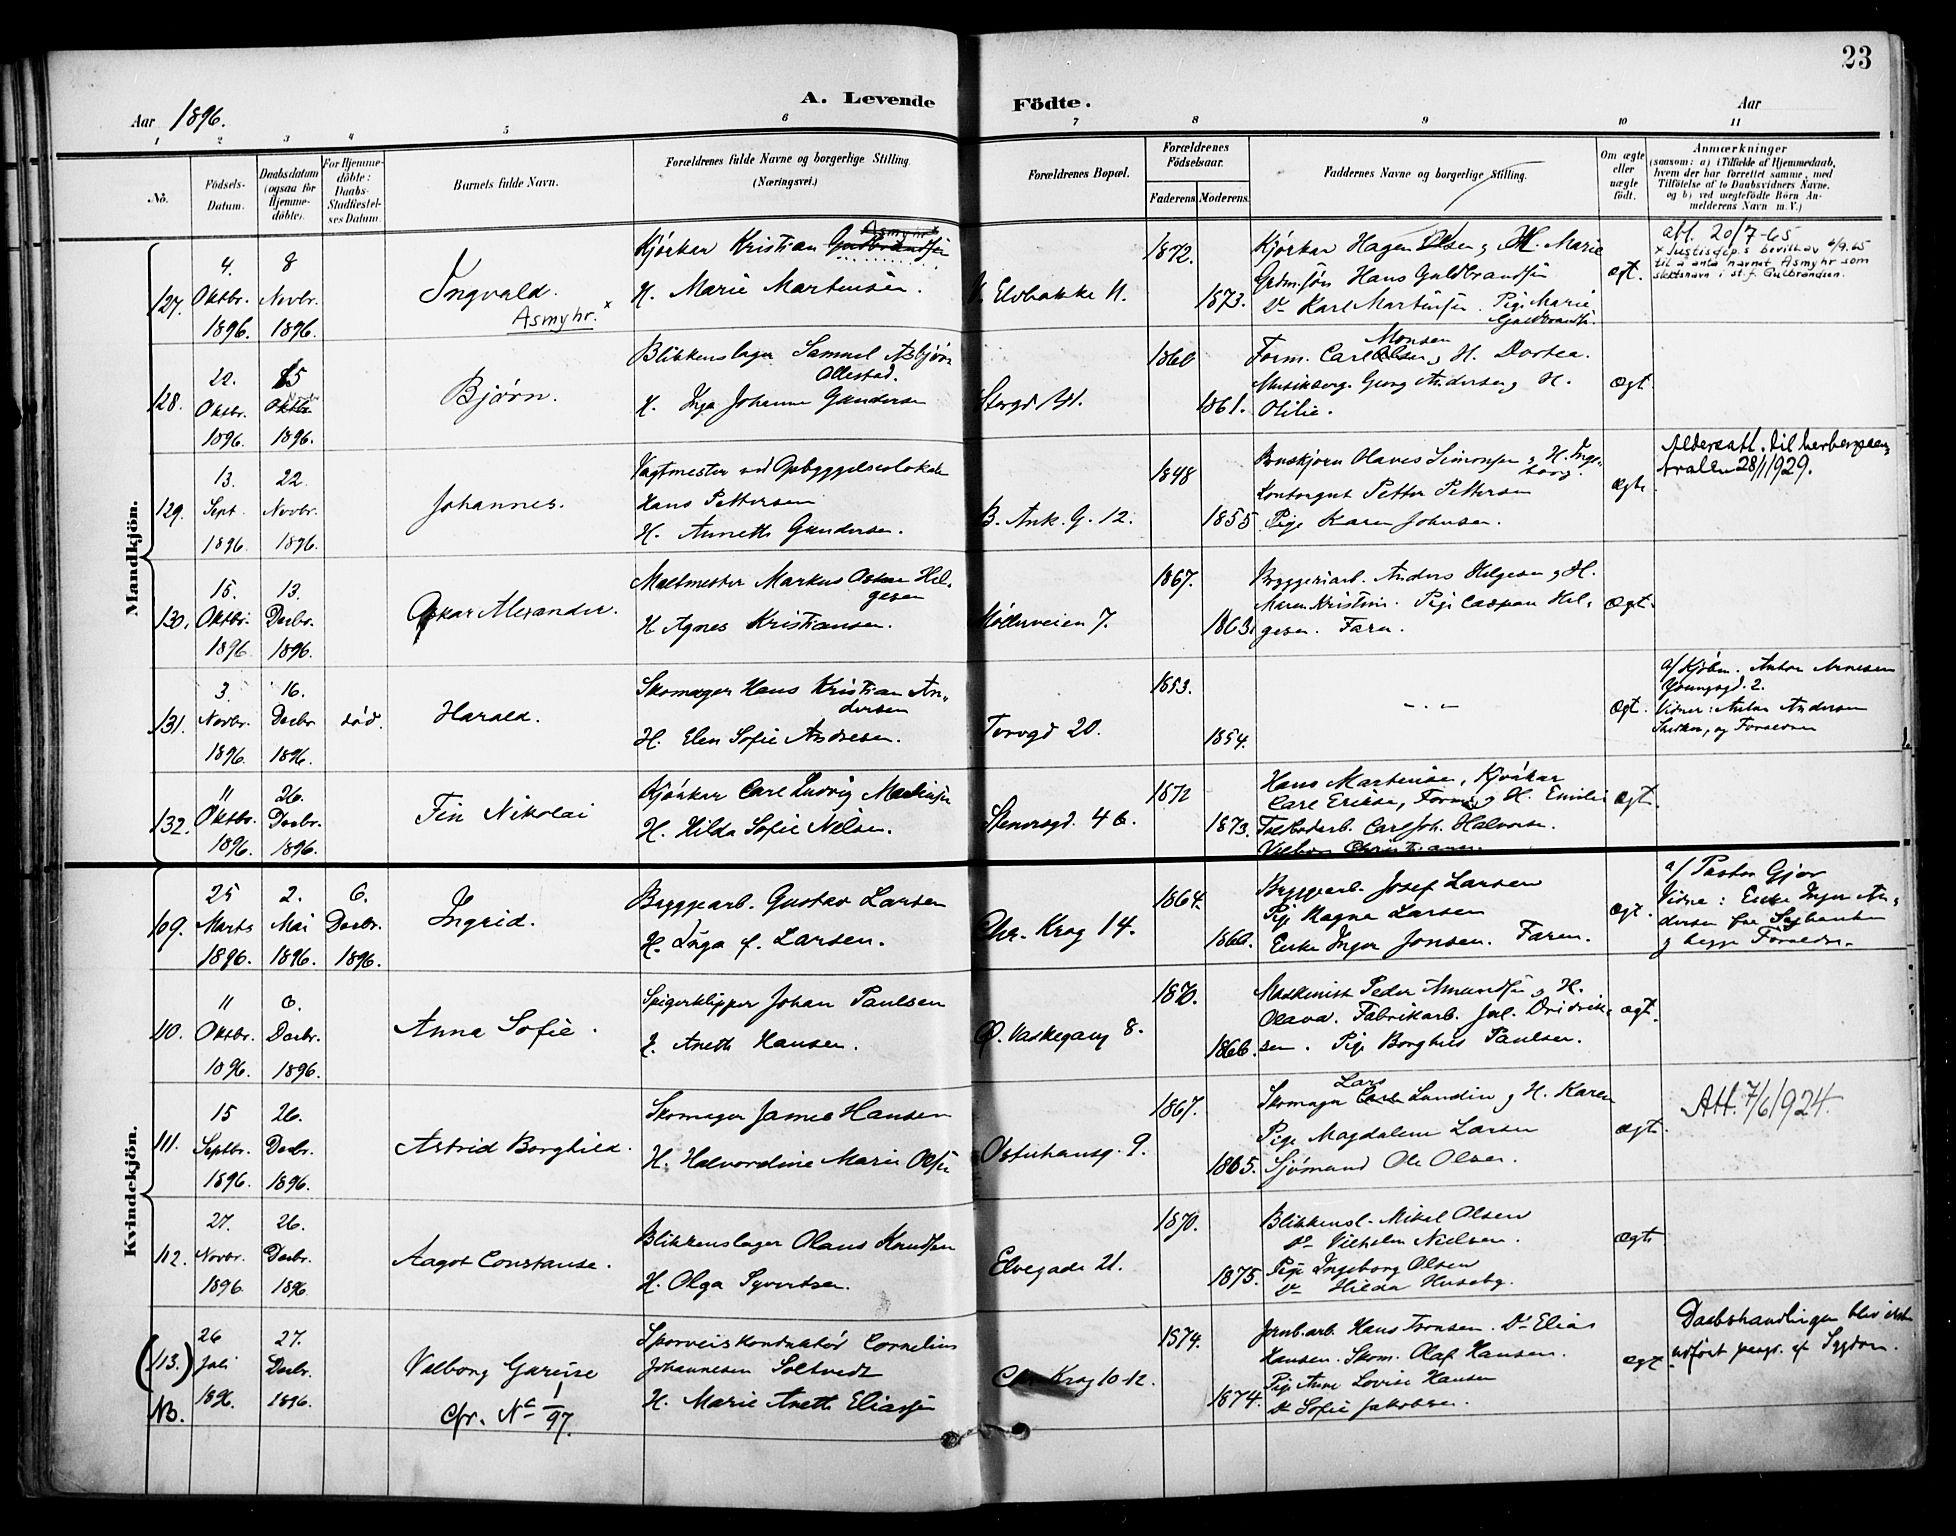 23
A. Levende Födte.
Aar 1896.
Aar
1 2 3 4 5 6 7 8 9 10 11
No.
Födsels-Datum.
Daabsdatum (ogsaa for Hjemme-döbte).
For Hjemme-döbte: Daabs-Stadfæstel-ses Datum.
Barnets fulde Navn.
Forældrenes fulde Navne og borgerlige Stilling.
(Næringsvei.)
Forældrenes Bopæl.
Forældrenes Födselsaar.
Faderens Moderens
Faddernes Navne og borgerlige Stilling.
Om ægte eller uægte födt.
Anmærkninger
(saasom: a) i Tilfælde af Hjemmedaab, hvem der har forrettet samme, med Tilföielse af to Daabsvidners Navne, og b) ved uægtefödte Börn Anmelderens Navn m. V.)
Mandkjön.
127.
4. Oktbr. 1896.
8 Novbr. 1896.
Ingvald.
Asmyhr. x
Kjørkar Kristian Gudbrandsen
Asmyhr x
H. Marie Martinsen.
V. Elvbakke 11.
1872.
1873.
Kjørkar Hagen Olsen og H. Marie
Grdm.søn Hans Guldbrandsen
Do Karl Martinsen. Pige Marie
Guldbrandsen.
ægt.
att. 20/7-65
x Justisdep.s bevilln. av 6/9.65
til å anta navnet Asmyhr som
slektsnavn i st.f. Gulbrandsen.
128.
22. Oktbr. 1896.
15 Oktbr 1896.
Bjørn.
Blikkenslager Samuel Asbjørn
Ollestad.
H. Inga Johanne Gundersen
Storgd 41.
1860
1861.
Form. Carl Olsen og H. Dortea.
Monsen
Musikberg. Georg Andersen og H.
Otilie.
ægt.
129.
13. Sept. 1896.
22. Novbr. 1896.
Johannes.
Vagtmester ved Opbyggelseslokale
Hans Pettersen
H. Anneth Gundersen.
B. Ank. G. 12.
1848
1855
Olaves Simonsen og H. Inge-
borg.
Kontorgut Petter Pettersen
Pige Karen Johnsen.
ægte
Aldersatt. til
28/1 1929.
130.
15. Oktbr. 1896
13. Decbr. 1896.
Oskar Alexander.
Maltmester Markus Oskar Hel-
gesen
H. Agnes Kristiansen.
Møllerveien 7.
1867.
1863.
Bryggeriarb. Anders Helgesen og H.
Maren Kristine. Pige Caspara Hel-
gesen. Faren.
ægt.
131.
3. Novbr. 1896.
16. Decbr 1896.
død.
Harald.
Skomager Hans Kristian An-
dersen
H. Elen Sofie Andresen.
Torvgd 20.
1853.
1854.
- „ -
ægt.
a/ Kjøbm. Anton Arnesen
Youngsgd. 2.
Vidner: Anton Andersen
og Forældren
132.
11 Oktbr. 1896.
26. Decbr. 1896.
Fin Nikolai
Kjørkar Carl Ludvig Martinsen
H. Hilda Sofie Nilsen.
Stenersgd. 4 b.
1872
1873.
Hans Martinsen, Kjørkar
Carl Eriksen, Form. og H. Emilie
Carl Joh. Halvorsen.
Valborg Christiansen.
ægt.
Kvindekjön.
109.
25 Marts 1896.
2. Mai 1896.
6. Decbr. 1896.
Ingrid.
Byggearb. Gustav Larsen
H. Inga f. Larsen.
Chr. Krog 14.
1864.
1860.
Byggearb. Josef Larsen
Pige Magna Larsen
Enke Inger Jonsen. Faren.
ægt.
a/ Pastor Gjør
Vidner: Enke Inger An-
dersen fra
og begge Forældre.
110.
11 Oktbr. 1896.
6. Decbr. 1896.
Anna Sofie.
Spigerklipper Johan Paulsen
H. Aneth Hansen.
Ø. Vaskegang 8.
1870.
1866.
Maskinist Peder Amundsen og H.
Olava. Fabrikarb. Jul. Dridrik-
sen. Pige Borghild Paulsen.
ægt.
111.
15 Septbr. 1896.
26. Decbr. 1896.
Astrid Borghild.
Skomager James Hansen
H. Halvordine Marie Olsen
Osterhausg. 9.
1867.
1865.
Skomager Carl Lundin og H. Karen
Lars
Pige Magdalene Larsen
Sjømand Ole Olsen.
ægt.
Att. 7/6 1924.
112.
27. Novbr. 1896
26. Decbr. 1896
Aagot Constanse.
Blikkenslager Olaus Knudsen
H. Olga Syvertsen.
Elvegade 21.
1870.
1875.
Blikkensl. Mikal Olsen
Do Vilhelm Nielsen.
Pige Ingeborg Olsen
Do Hilda Huseby.
ægte
(113.)
NB.
26 Juli 1896.
27. Decbr. 1896.
Valborg Garine
Cfr. No 1/97.
Sporveiskonduktør Cornelius
Johannesen Soltvedt
H. Marie Aneth Eliassen
Chr. Krog 10-12.
1874.
1874.
Jernb.arb. Hans Tronsen. Do Elias
Hansen. Skom. Olaf Hansen.
Pige Anne Lovise Hansen
Do Sofie Jakobsen.
ægt.
Daabshandlingen blev ikke
udført pargr. af Sygdom.